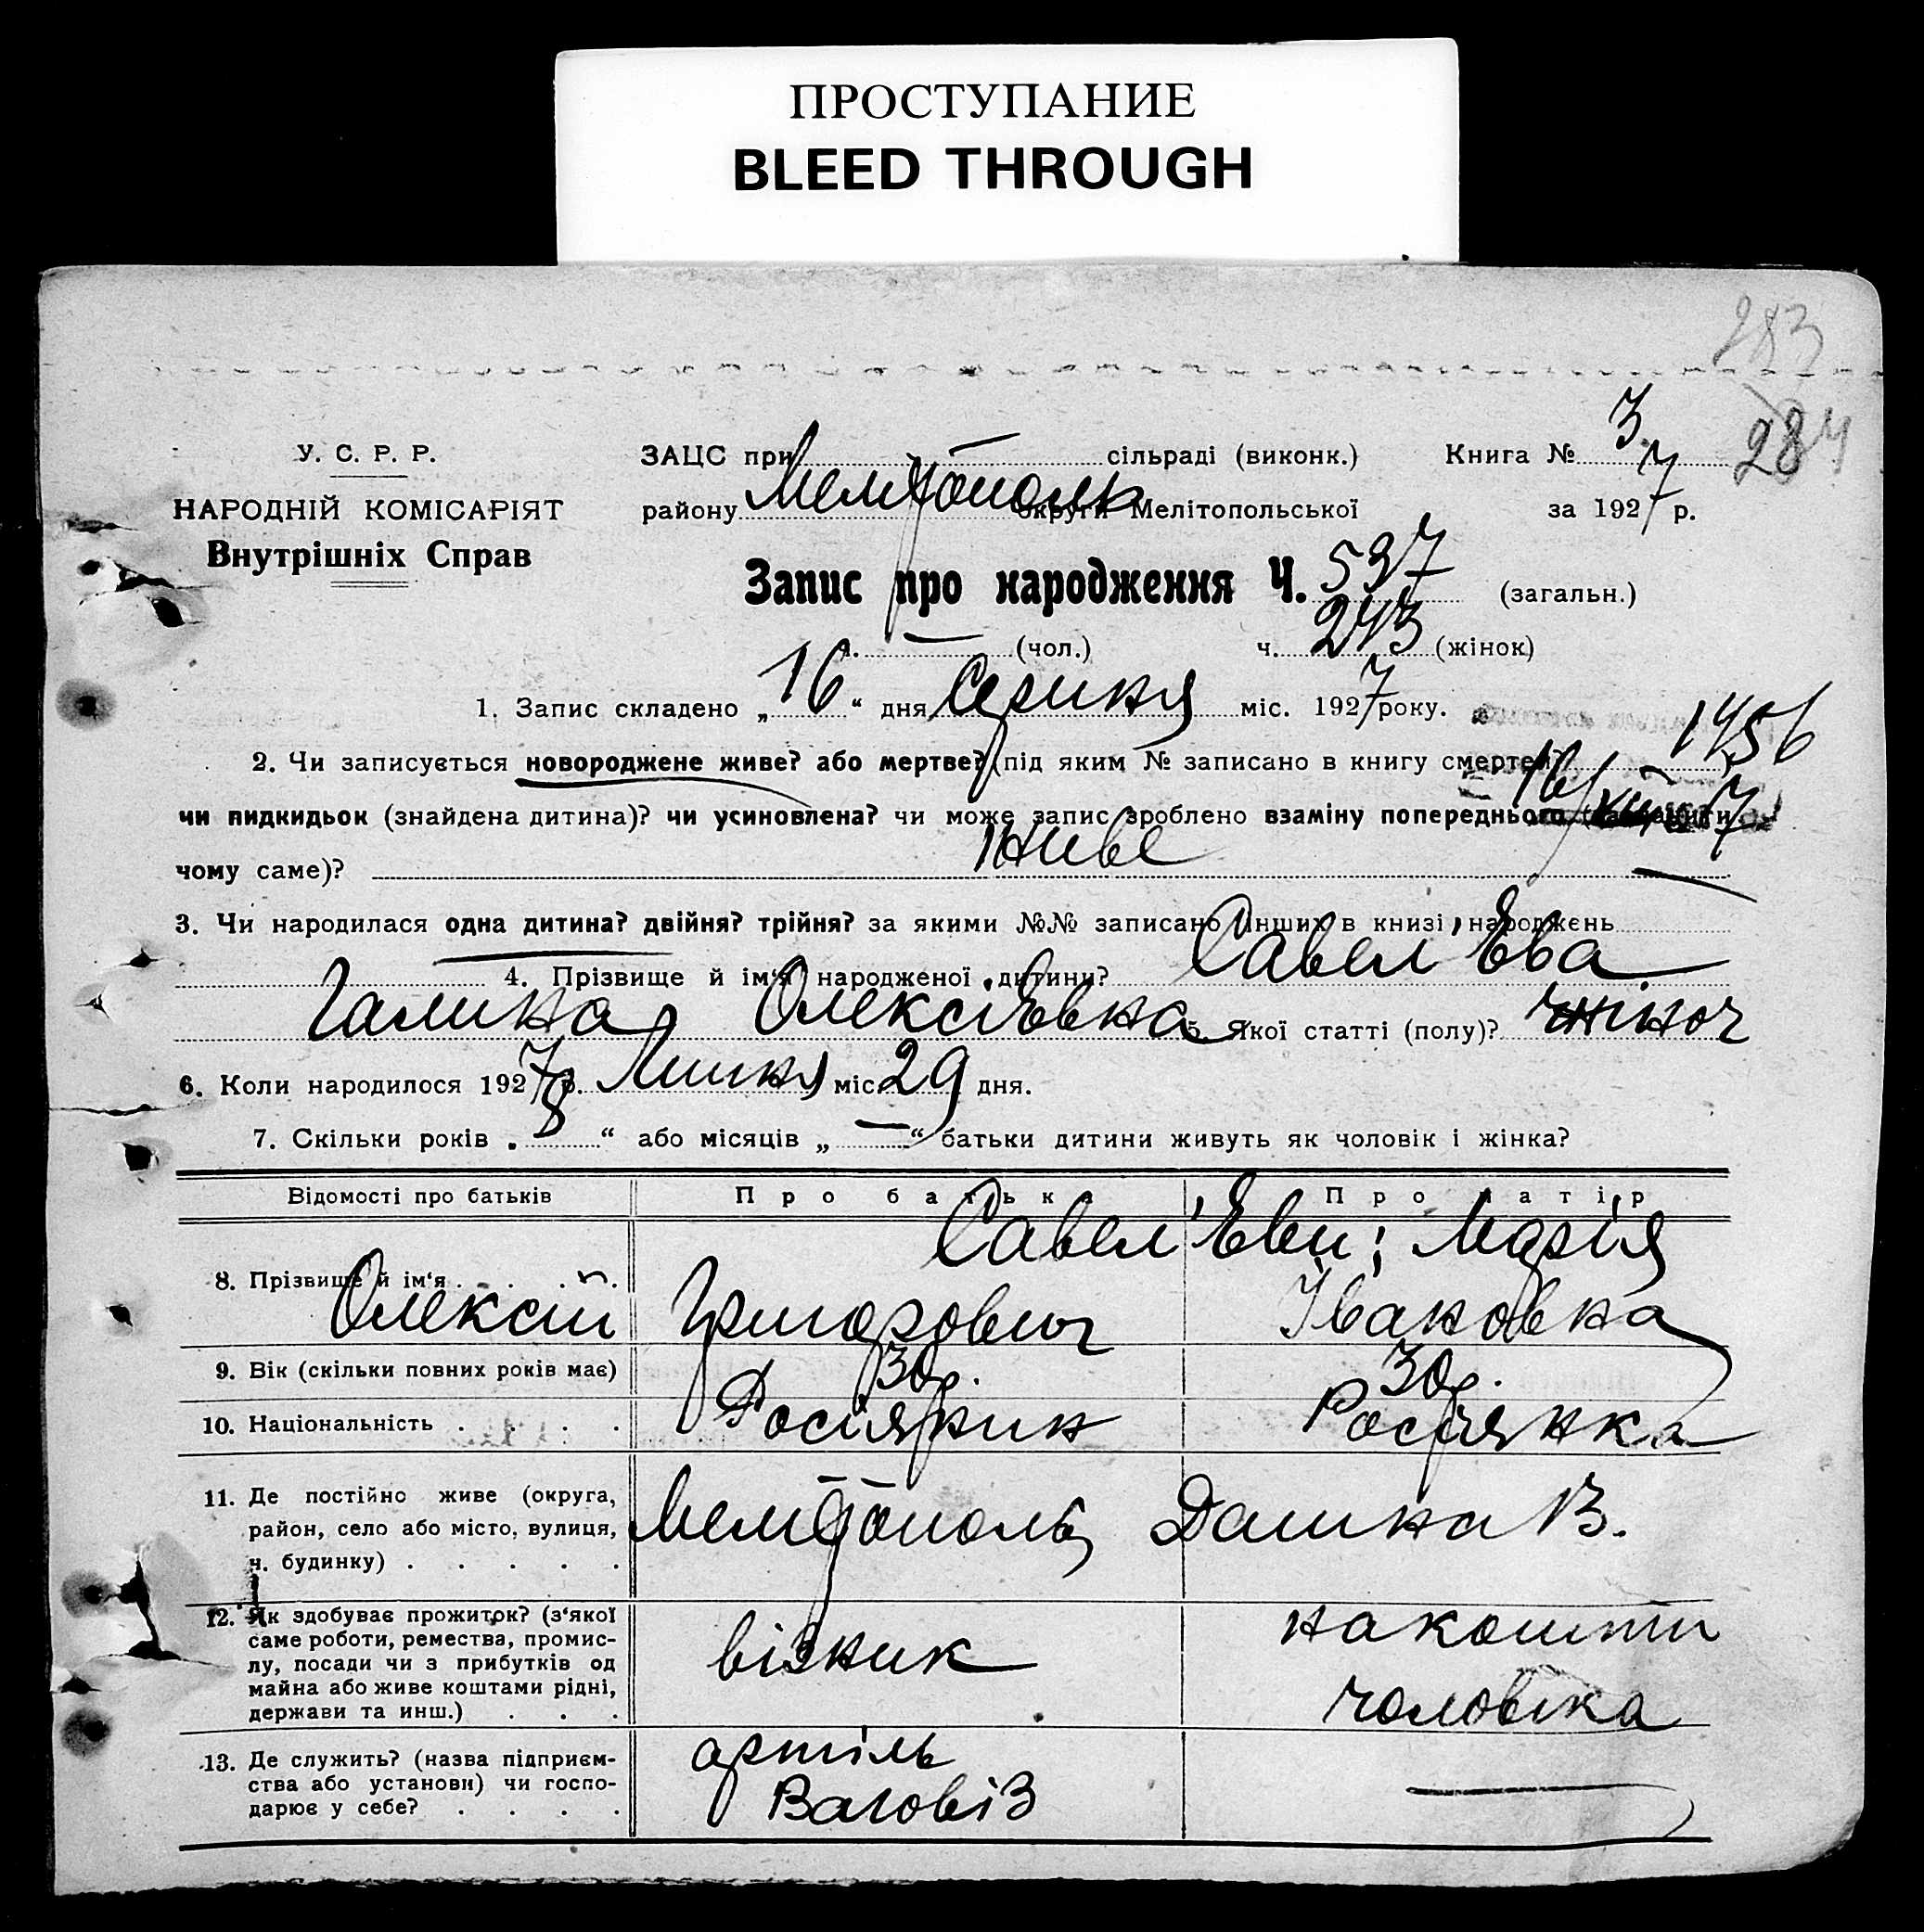 ПРОСТУПАНИЕ
BLEED THROUGH
283
284
У. С. Р. Р.
НАРОДНІЙ КОМІСАРІЯТ
Внутрішніх Справ
ЗАЦС при сільраді (виконк.) Книга № 3
району Мелітополь округи Мелітопольської за 1927 р.
Запис про народження Ч. 537 (загальн.)
ч. — (чол.) ч. 243 (жінок)
1. Запис складено „16“ дня Серпня міс. 1927 року.
1456
2. Чи записується новороджене живе? або мертве? (під яким № записано в книгу смертей)
16/ 7
чи пидкидьок (знайдена дитина)? чи усиновлена? чи може запис зроблено взаміну попереднього
чому саме)? Живе
3. Чи народилася одна дитина? двійня? трійня? за якими №№ записано инших в книзі народжень
4. Прізвище й ім‘я народженої дитини? Савел'Ева
Галина Олексіевна 5. Якої статті (полу)? жіноч
6. Коли народилося 1927 р. Липня міс. 29 дня.
7. Скільки років „8“ або місяців „—“ батьки дитини живуть як чоловік і жінка?
Відомості про батьків Про батька Про матір
Савел'Еви; Марія
8. Прізвище й ім‘я
Олексій Григорович Івановна
9. Вік (скільки повних років має) 30р. 30р.
10. Національність Росіянин Росіянка
11. Де постійно живе (округа,
район, село або місто, вулиця, Мелітополь Дашка В.
ч. будинку)
12. Як здобуває прожиток? (з‘якої
саме роботи, ремества, промис-
лу, посади чи з прибутків од
майна або живе коштами рідні,
держави та инш.)
візник
на кошти
чоловіка
13. Де служить? (назва підприєм-
ства або установи) чи госпо-
дарює у себе?
артіль
Ваговіз
—